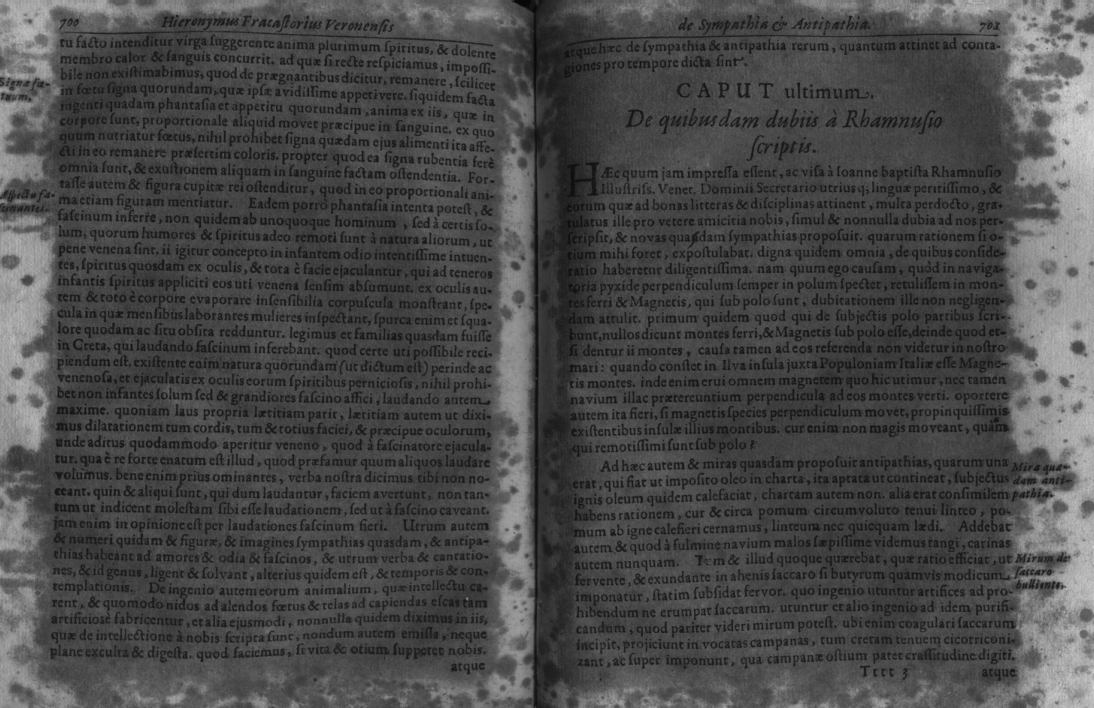 700 Hieronymus Fracastorius Veronensis
tu facto intenditur virga suggerente anima plurimum spiritus, & dolente
membro calor & sanguis concurrit. ad quæ si recte respiciamus, impossi-
bile non existimabimus, quod de prægnantibus dicitur, remanere, scilicet
in fœtu signa quorundam, quæ ipsæ avidissime appetivere. siquidem facta
ingenti quadam phantasia et appetitu quorundam, anima ex iis, quæ in
corpore sunt, proportionale aliquid movet præcipue in sanguine. ex quo
quum nutriatur fœtus, nihil prohibet signa quædam ejus alimenti ita affe-
cti in eo remanere præsertim coloris. propter quod ea signa rubentia ferè
omnia sunt, & exustionem aliquam in sanguine factam ostendentia. For-
tasse autem & figura cupitæ rei ostenditur, quod in eo proportionali ani-
ma etiam figuram mentiatur. Eadem porrò phantasia intenta potest, &
fascinum inferre, non quidem ab unoquoque hominum, sed à certis so-
lum, quorum humores & spiritus adeo remoti sunt à natura aliorum, ut
pene venena sint. ii igitur concepto in infantem odio intentissime intuen-
tes, spiritus quosdam ex oculis, & tota è facie ejaculantur, qui ad teneros
infantis spiritus appliciti eos uti venena sensim absumunt. ex oculis au-
tem & toto è corpore evaporare insensibilia corpuscula monstrant, spe-
cula in quæ mensibus laborantes mulieres inspectant, spurca enim et squa-
lore quodam ac situ obsita redduntur. legimus et familias quasdam fuisse
in Creta, qui laudando fascinum inferebant. quod certe uti possibile reci-
piendum est. existente enim natura quorundam (ut dictum est) perinde ac
venenosa, et ejaculatis ex oculis eorum spiritibus perniciosis, nihil prohi-
bet non infantes solum sed & grandiores fascino affici, laudando autem
maxime. quoniam laus propria lætitiam parit, lætitiam autem ut dixi-
mus dilatationem tum cordis, tum & totius faciei, & præcipue oculorum,
unde aditus quodammodo aperitur veneno, quod à fascinatore ejacula-
tur. qua è re forte enatum est illud, quod præfamur quum aliquos laudare
volumus. bene enim prius ominantes, verba nostra dicimus tibi non no-
ceant. quin & aliqui sunt, qui dum laudantur, faciem avertunt, non tan-
tum ut indicent molestam sibi esse laudationem, sed ut à fascino caveant.
jam enim in opinione est per laudationes fascinum fieri. Utrum autem
& numeri quidam & figuræ, & imagines sympathias quasdam, & antipa-
thias habeant ad amores & odia & fascinos, & utrum verba & cantatio-
nes, & id genus, ligent & solvant, alterius quidem est, & temporis & con-
templationis. De ingenio autem eorum animalium, quæ intellectu ca-
rent, & quomodo nidos ad alendos fœtus & telas ad capiendas escas tam
artificiosè fabricentur, et alia ejusmodi, nonnulla quidem diximus in iis,
quæ de intellectione à nobis scripta sunt, nondum autem emissa, neque
plane exculta & digesta. quod faciemus, si vita & otium suppetet nobis.
atque
Signa fœ-
tuum.
de Sympathia & Antipathia. 701
atque hæc de sympathia & antipathia rerum, quantum attinet ad conta-
giones pro tempore dicta sint.
CAPUT ultimum.
De quibusdam dubiis à Rhamnusio
scriptis.
HÆc quum jam impressa essent, ac visa à Ioanne baptista Rhamnusio
Illustriss. Venet. Dominii Secretario utriusq; linguæ peritissimo, &
eorum quæ ad bonas litteras & disciplinas attinent, multa perdocto, gra-
tulatus ille pro vetere amicitia nobis, simul & nonnulla dubia ad nos per-
scripsit, & novas quasdam sympathias proposuit. quarum rationem si o-
tium mihi foret, expostulabat. digna quidem omnia, de quibus conside-
ratio haberetur diligentissima. nam quum ego causam, quòd in naviga-
toria pyxide perpendiculum semper in polum spectet, retulissem in mon-
tes ferri & Magnetis, qui sub polo sunt, dubitationem ille non negligen-
dam attulit. primum quidem quod qui de subjectis polo partibus scri-
bunt, nullos dicunt montes ferri, & Magnetis sub polo esse, deinde quod et-
si dentur ii montes, causa tamen ad eos referenda non videtur in nostro
mari: quando constet in Ilva insula juxta Populoniam Italiæ esse Magne-
tis montes. inde enim erui omnem magnetem quo hic utimur, nec tamen
navium illac prætereuntium perpendicula ad eos montes verti. oportere
autem ita fieri, si magnetis species perpendiculum movet, propinquissimis
existentibus insulæ illius montibus. cur enim non magis moveant, quàm
qui remotissimi sunt sub polo?
Ad hæc autem & miras quasdam proposuit antipathias, quarum una
erat, qui fiat ut imposito oleo in charta, ita aptata ut contineat, subjectus
ignis oleum quidem calefaciat, chartam autem non. alia erat consimilem
habens rationem, cur & circa pomum circumvoluto tenui linteo, po-
mum ab igne calefieri cernamus, linteum nec quicquam lædi. Addebat
autem & quod à fulmine navium malos sæpissime videmus tangi, carinas
autem nunquam. Item & illud quoque quærebat, quæ ratio efficiat, ut
fervente, & exundante in ahenis saccaro si butyrum quamvis modicum
imponatur, statim subsidat fervor. quo ingenio utuntur artifices ad pro-
hibendum ne erumpat saccarum. utuntur et alio ingenio ad idem purifi-
candum, quod pariter videri mirum potest. ubi enim coagulari saccarum
incipit, projiciunt in vocatas campanas, tum cretam tenuem cicotriconi-
zant, ac super imponunt, qua campanæ ostium patet crassitudine digiti.
Tttt 3 atque
Miræ quæ-
dam anti-
pathiæ.
Mirum de
saccaro
bulliente.